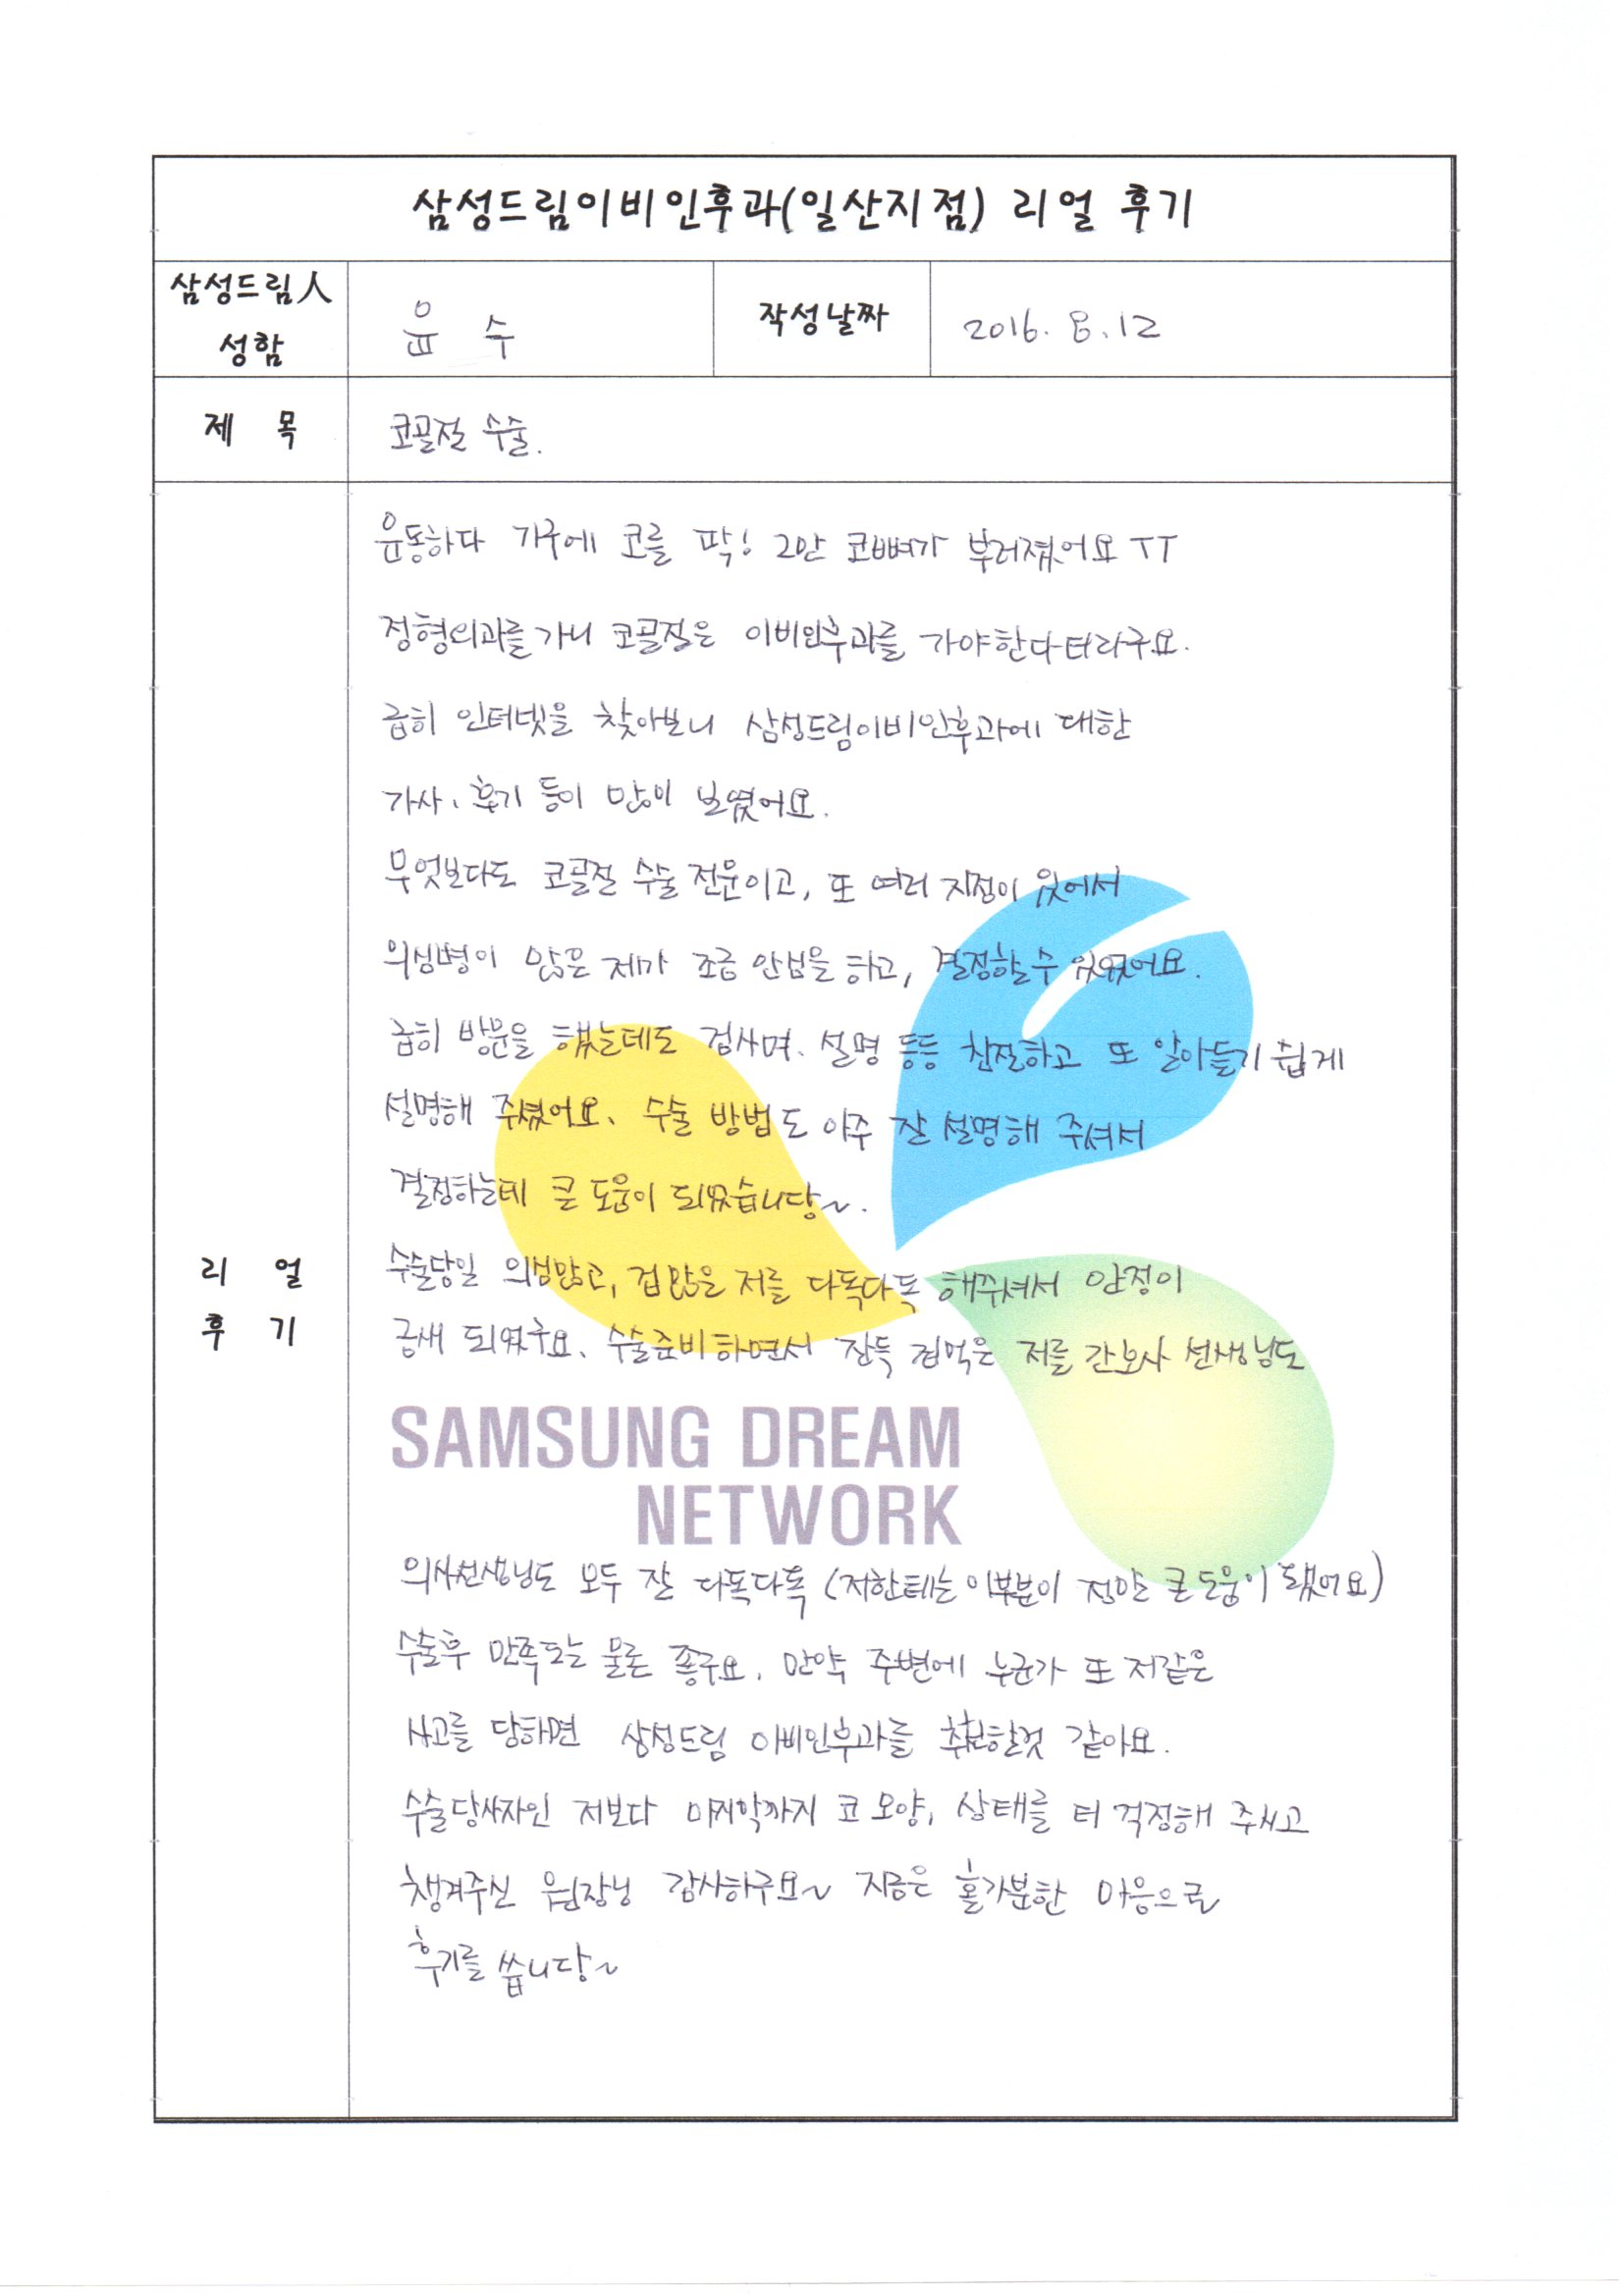 삼성드림이비인후과(일산지점) 리얼 후기
삼성드림人
성함
윤 수
작성날짜
2016. 8. 12
제 목
코골절 수술.
리 얼
후 기
운동하다 기구에 코를 팍! 그만 코뼈가 부러졌어요 ㅜㅜ
정형외과를 가니 코골절은 이비인후과를 가야한다더라구요.
급히 인터넷을 찾아보니 삼성드림이비인후과에 대한
기사, 후기 등이 많이 보였어요.
무엇보다도 코골절 수술 전문이고, 또 여러 지점이 있어서
의심병이 많은 제가 조금 안심을 하고, 결정할수 있었어요.
급히 방문을 했는데도 검사며, 설명 등등 친절하고 또 알아듣기 쉽게
설명해 주셨어요. 수술 방법도 아주 잘 설명해 주셔서
결정하는데 큰 도움이 되었습니당~.
수술당일 의심많고, 겁많은 저를 다독다독 해주셔서 안정이
금새 되었구요. 수술준비하면서 잔뜩 겁먹은 저를 간호사 선생님도
SAMSUNG DREAM
NETWORK
의사선생님도 모두 잘 다독다독 (저한테는 이부분이 정말 큰 도움이 됐어요)
수술후 만족도는 물론 좋구요. 만약 주변에 누군가 또 저같은
사고를 당하면 삼성드림 이비인후과를 할것 같아요.
수술당사자인 저보다 마지막까지 코 모양, 상태를 더 걱정해 주시고
챙겨주신 원장님 감사하구요~ 지금은 홀가분한 마음으로
후기를 씁니당~